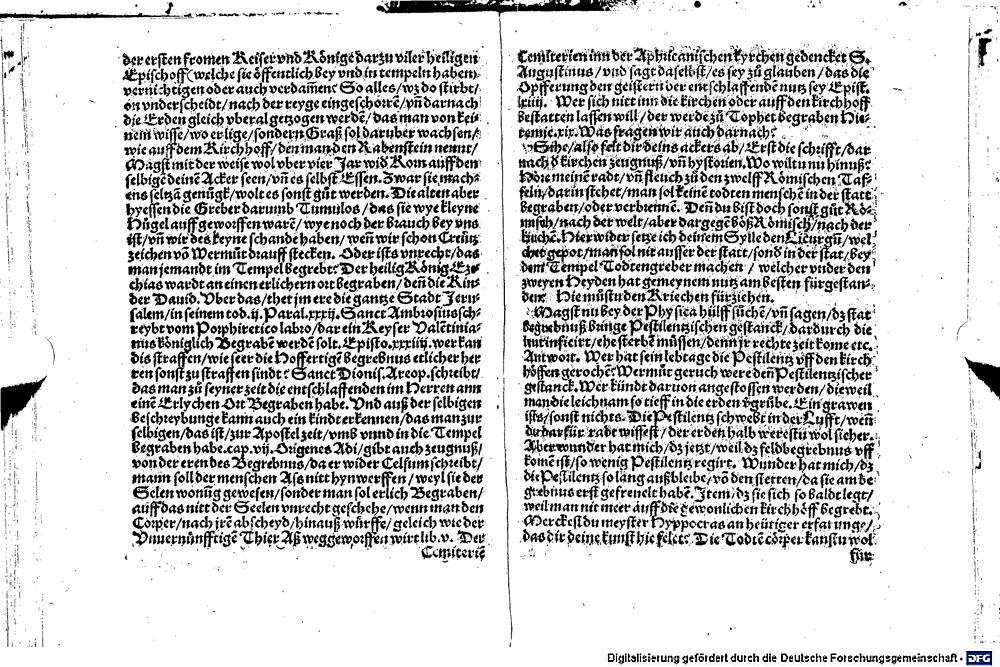 der ersten fromen Keiser vnd Könige darzu viler heiligen
Epischoff (welche sie öffentlich bey vnd in tempeln haben)
vernichtigen oder auch verdam̄en: So alles/wz do stirbt/
on vnderscheidt/nach der reyge eingeschorē/vn̄ darnach
die Erden gleich vberal gezogen werdē/das man von kei-
nem wisse/wo er lige/sondern Graß sol daruber wachsen/
wie auff dem Kirchhoff/den man den Rabenstein nennt/
Magst mit der weise wol vber vier Jar wid Korn auff den
selbigē deinē Acker seen/vn̄ es selbst Essen. Zwar sie mach-
ens seltzā genügk/wolt es sonst güt werden. Die alten aber
hyessen die Greber darumb Tumulos/das sie wye kleyne
Hügel auff geworffen warē/wye noch der brauch bey vns
ist/vn̄ wir des keyne schande haben/wen̄ wir schon Creütz
zeichen vō Wermüt drauff stecken. Oder ists vnrecht/das
man jemandt im Tempel begrebt: Der heilig König Eze-
chias wardt an einen erlichern ort begraben/den̄ die Kin-
der Dauid. Vber das/thet jm ere die gantze Stadt Jeru-
salem/in seinem tod.ij. Paral.xxxij. Sanct Ambrosius sch-
reybt vom Porphiretico labro/dar ein Keyser Valētinia-
nus königlich Begrabē werdē solt. Episto.xxxiiij. wer kan
dis straffen/wie seer die hoffertigē begrebnus etlicher her
ren sonst zu straffen sindt: Sanct Dionis. Areop. schreibt/
das man zü seyner zeit die entschlaffenden im Herren ann
einē Erlychen Ort Begraben habe. Vnd auß der selbigen
beschreybunge kann auch ein kindt erkennen/das man zur
selbigen/das ist/zur Apostel zeit/vmb vnnd in die Tempel
begraben habe.cap.vij. Origenes Adi/gibt auch zeugnuß/
von der eren des Begrebnus/da er wider Celsum schreibt/
mann soll der menschen Ass nitt hynwerffen/weyl sie der
Selen wonūg gewesen/sonder man sol erlich Begraben/
auff das nitt der Seelen vnrecht geschehe/wenn man den
Cörper/nach jrē abscheyd/hinauß würffe/geleich wie der
Vnuernünfftigē Thier Aß weggeworffen wirt lib.v. Der
Cemiterië
Cemiterien inn der Aphricanischen kyrchen gedencket S.
Augustinus/vnd sagt daselbst/es sey zü glauben/das die
Opfferung den geistern der entschlaffendē nutz sey Epist.
lxiiij. Wer sich nitt inn die kirchen oder auff den kirchhoff
bestatten lassen will/der werde zü Tophet begraben Hie-
remie.xix. Was fragen wir auch darnach?
Sihe/also felt dir deins ackers ab/Erst die schrifft/dar
nach d kirchen zeugnuß/vn̄ hystorien. Wo wiltu nu hinuß:
Höre meinē radt/vn̄ fleuch zü den zwelff Römischen Taf-
feln/darin stehet/man sol keinē todten menschē in der statt
begraben/oder verbrennē. Den̄ du bist doch sonst güt Rö-
misch/nach der welt/aber dargegē böß Römisch/nach der
kirchē. Hier wider setze ich deinem Sylle den Licurgū/wel
cher gepot/man sol nit ausser der statt/sond in der stat/bey
dem Tempel Todtengreber machen/welcher vnder den
zweyen Heyden hat gemeynem nutz am besten fürgestan-
den: Hie müstu den Kriechen fürziehen.
Magst nu bey der Physica hülff süchē/vn̄ sagen/dz stat
begrebnuß bringe Pestilentzischen gestanck/dardurch die
leut infi­ciert/ehe sterbē müssen/denn jr rechte zeit kome etc.
Antwort. Wer hat sein lebtage die Pestilentz vff den kirch
höffen gerochē: Wermüt geruch were den̄ Pestilentzischer
gestanck. Wer kündt daruon angestossen werden/die weil
man die leichnam so tieff in die erden v̄grübe. Ein grawen
ists/sonst nichts. Die Pestilentz schwebt in der Lufft/wen̄
du darfür radt wissest/der erden halb werestu wol sicher.
Aber wunder hat mich/dz jetzt/weil dz feldbegrebnus vff
komē ist/so wenig Pestilentz regirt. Wunder hat mich/dz
die Pestilentz so lang außbleibe/vō den stetten/da sie am be
grebnus erst gefreuelt habē. Item/dz sie sich so baldt legt/
weil man nit meer auff die gewonlichen kirchhöff begrebt.
Merckest du meyster Hyppocras an heütiger erfarunge/
das dir deine kunst hie felet: Die Todtē cörper kanstu wol
für
Digitalisierung gefördert durch die Deutsche Forschungsgemeinschaft - DFG